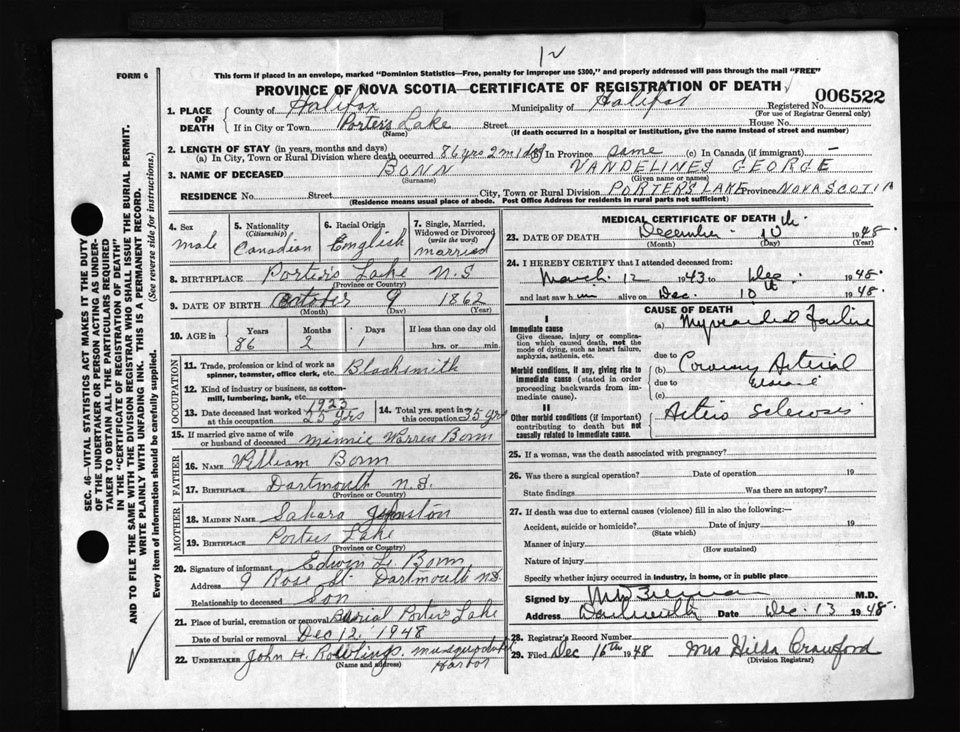 12
FORM 6
This form if placed in an envelope, marked "Dominion Statistics—Free, penalty for improper use $300," and properly addressed will pass through the mail "FREE"
PROVINCE OF NOVA SCOTIA—CERTIFICATE OF REGISTRATION OF DEATH
006522
1. PLACE OF DEATH
County of Halifax Municipality of Halifax Registered No.
(For use of Registrar General only)
If in City or Town Porters Lake Street House No.
(Name) (If death occurred in a hospital or institution, give the name instead of street and number)
2. LENGTH OF STAY (in years, months and days)
(a) In City, Town or Rural Division where death occurred 86 yrs 2 m 1 day (b) In Province same (c) In Canada (if immigrant) —
3. NAME OF DECEASED BONN VANDELINES GEORGE
(Surname) (Given name or names)
RESIDENCE No. Street City, Town or Rural Division PORTERS LAKE Province NOVA SCOTIA
(Residence means usual place of abode. Post Office Address for residents in rural parts not sufficient)
4. Sex
male
5. Nationality
(Citizenship)
Canadian
6. Racial Origin
English
7. Single, Married, Widowed or Divorced
(write the word)
married
8. BIRTHPLACE Porters Lake N.S
(Province or Country)
9. DATE OF BIRTH October 9 1862
(Month) (Day) (Year)
10. AGE in Years Months Days If less than one day old
86 2 1 hrs. or min.
OCCUPATION
11. Trade, profession or kind of work as spinner, teamster, office clerk, etc. Blacksmith
12. Kind of industry or business, as cotton-mill, lumbering, bank, etc.
13. Date deceased last worked at this occupation 1923 25 yrs
14. Total yrs. spent in this occupation 35 yrs
15. If married give name of wife or husband of deceased Minnie Warren Bonn
FATHER
16. NAME William Bonn
17. BIRTHPLACE Dartmouth N.S.
(Province or Country)
MOTHER
18. MAIDEN NAME Sahara Johnston
19. BIRTHPLACE Porters Lake
(Province or Country)
20. Signature of informant Edwin L. Bonn
Address 9 Rose St. Dartmouth N.S.
Relationship to deceased Son
21. Place of burial, cremation or removal Burial Porters Lake
Date of burial or removal Dec 12, 1948
22. UNDERTAKER John H. Rowlings. Musquodoboit Harbor
(Name and address)
MEDICAL CERTIFICATE OF DEATH
23. DATE OF DEATH December 10th 1948.
(Month) (Day) (Year)
24. I HEREBY CERTIFY that I attended deceased from:
March 12 1943 to Dec. 1948.
and last saw him alive on Dec. 10th 1948.
CAUSE OF DEATH
I
Immediate cause
Give disease, injury or complication which caused death, not the mode of dying, such as heart failure, asphyxia, asthenia, etc.
(a) Myocardial Failure
due to
Morbid conditions, if any, giving rise to immediate cause (stated in order proceeding backwards from immediate cause).
(b) Coronary Arterial
due to disease
(c)
II
Other morbid conditions (if important) contributing to death but not causally related to immediate cause.
Arterio Sclerosis
25. If a woman, was the death associated with pregnancy?
26. Was there a surgical operation? Date of operation 19
State findings Was there an autopsy?
27. If death was due to external causes (violence) fill in also the following:—
Accident, suicide or homicide? Date of injury 19
(State which)
Manner of injury
(How sustained)
Nature of injury
Specify whether injury occurred in industry, in home, or in public place
Signed by M.D.
Address Dartmouth Date Dec. 13 1948.
28. Registrar's Record Number
29. Filed Dec 16th 1948 Mrs Hilda Crawford
(Division Registrar)
SEC. 46—VITAL STATISTICS ACT MAKES IT THE DUTY
OF THE UNDERTAKER OR PERSON ACTING AS UNDERTAKER TO OBTAIN ALL THE PARTICULARS REQUIRED
IN THE "CERTIFICATE OF REGISTRATION OF DEATH"
AND TO FILE THE SAME WITH THE DIVISION REGISTRAR WHO SHALL ISSUE THE BURIAL PERMIT.
WRITE PLAINLY WITH UNFADING INK. THIS IS A PERMANENT RECORD.
Every item of information should be carefully supplied. (See reverse side for instructions.)